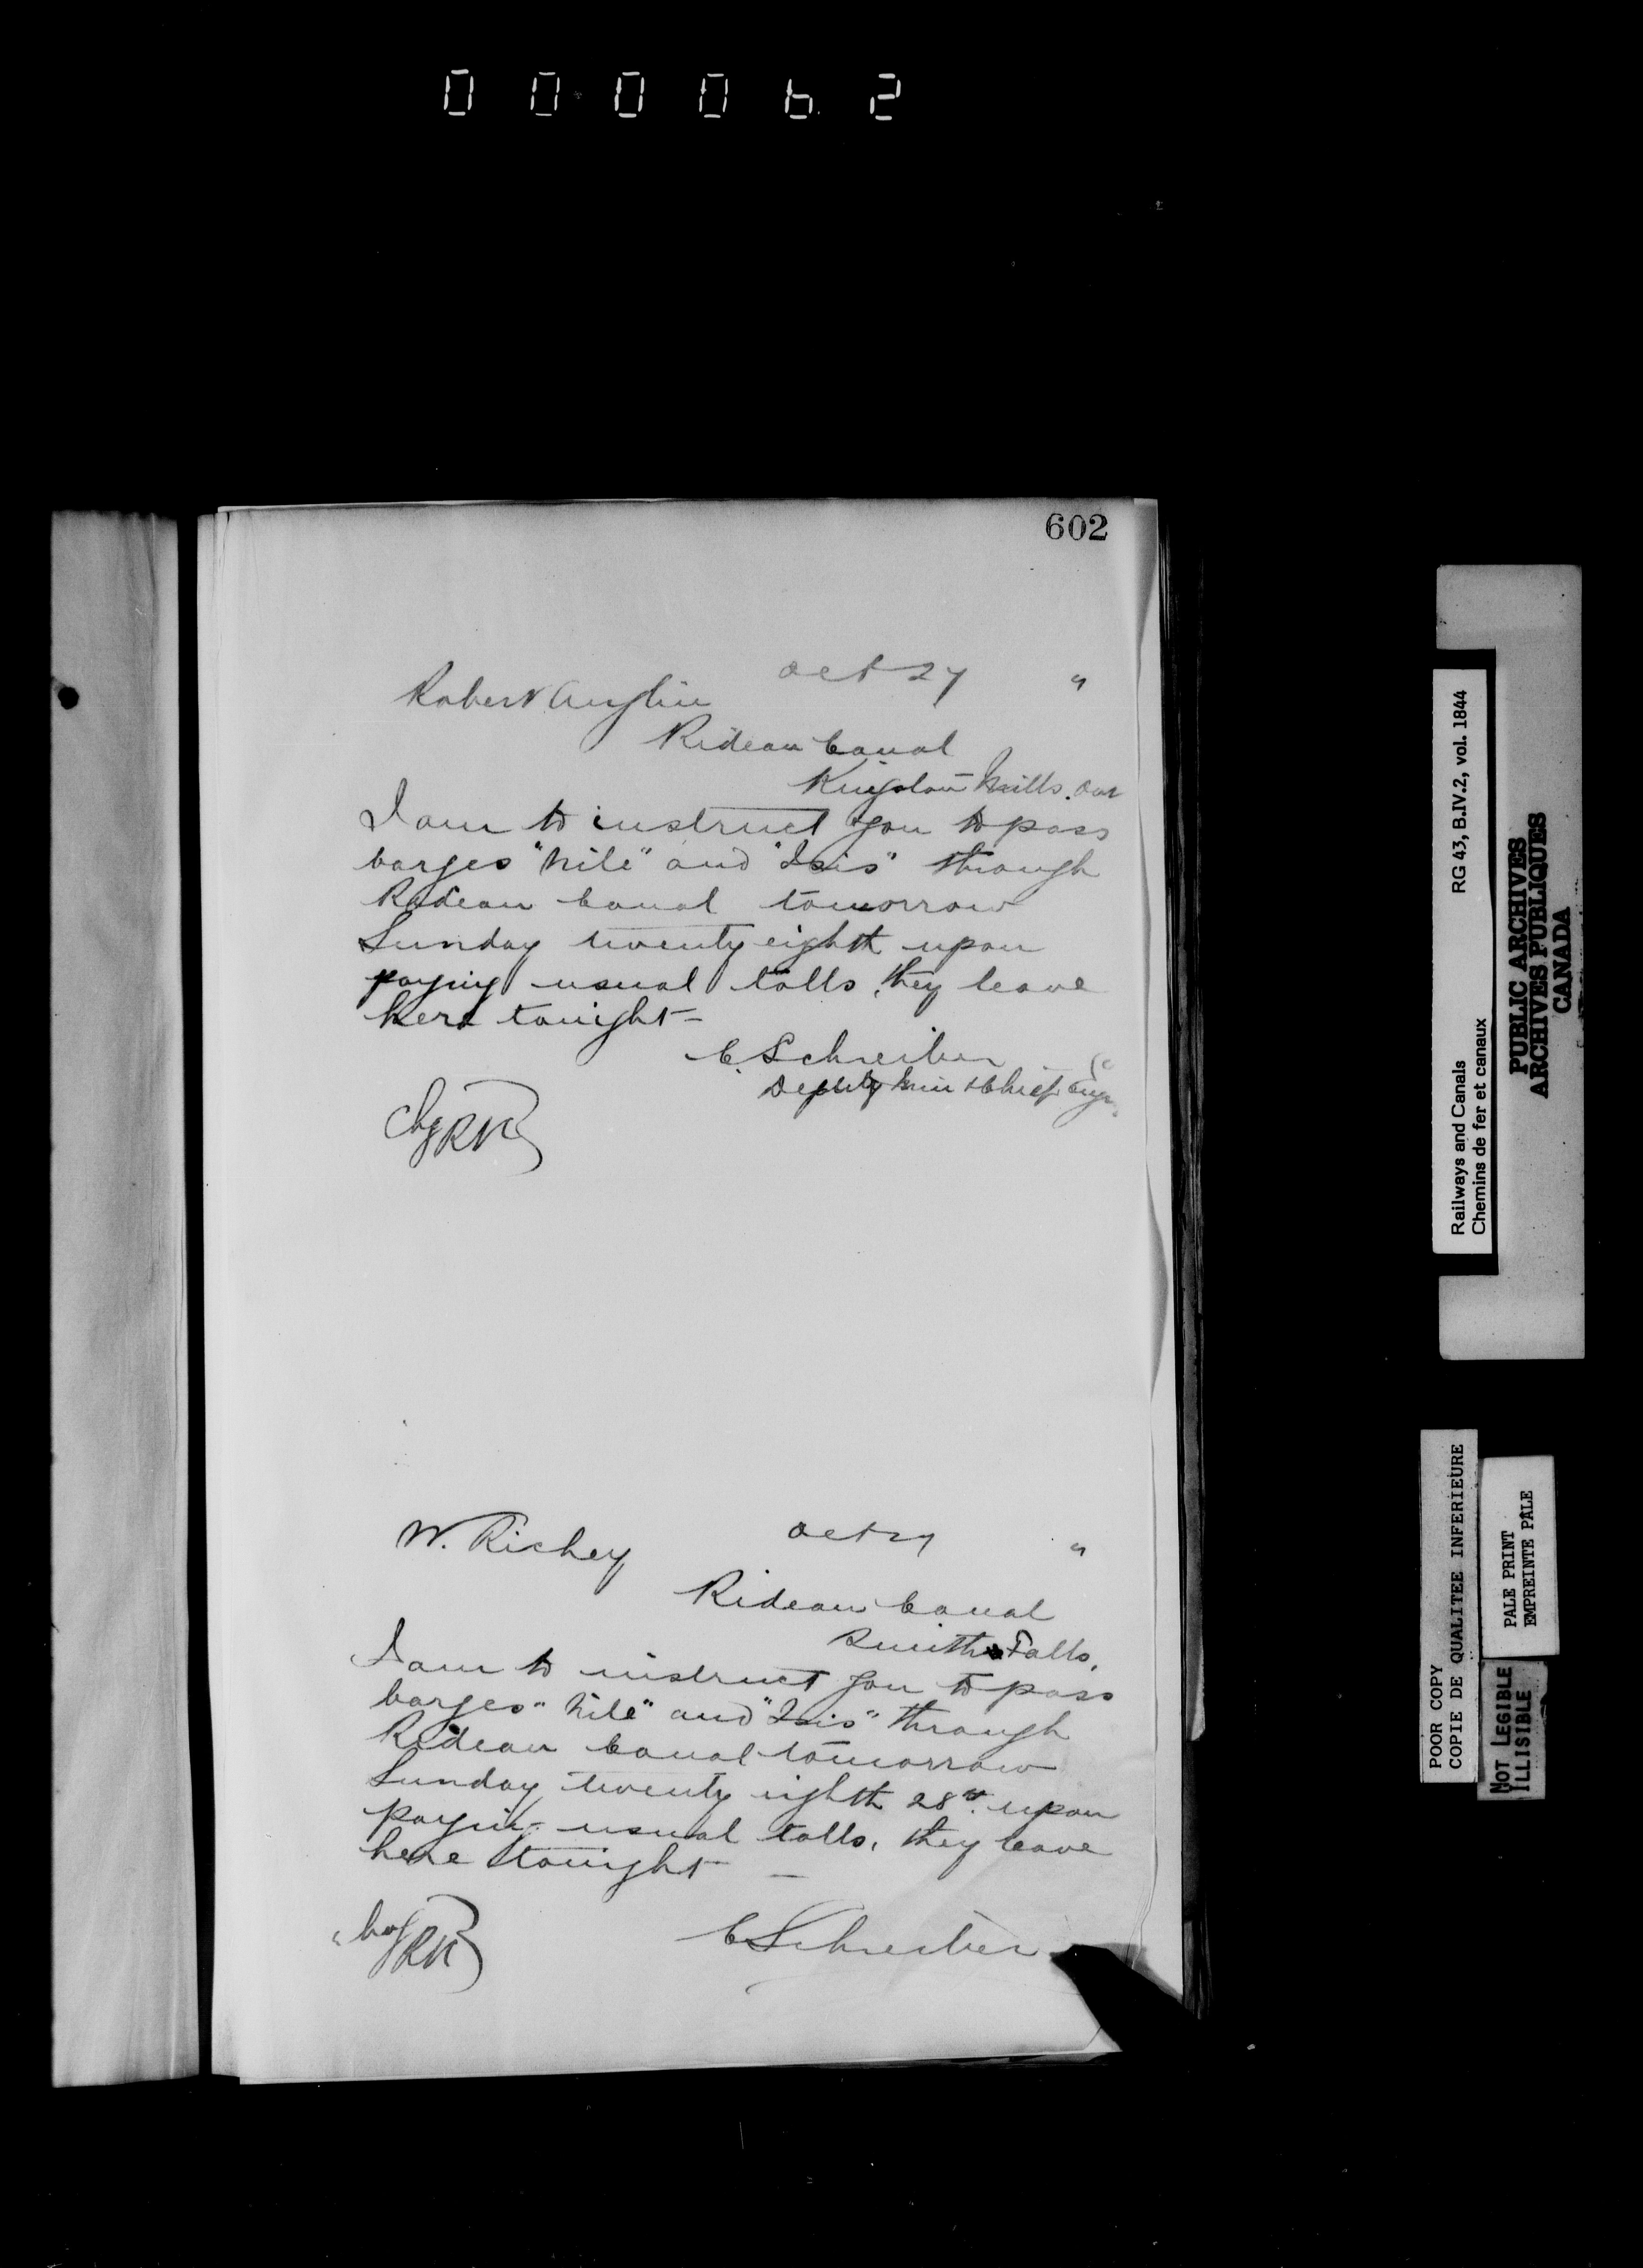 000062
602
Oct 27 "
Robert Anglin
Rideau Canal
Kingston Mills. Ont
I am to instruct you to pass
barges "Nile" and "Isis" through
Rideau Canal tomorrow
Sunday twenty eighth upon
paying usual tolls, they leave
here tonight —
C. Schreiber
Deputy Min & Chief Engr.
Chg RR
W. Richey Oct 27 "
Rideau Canal
Smiths Falls.
I am to instruct you to pass
barges "Nile" and "Isis" through
Rideau Canal tomorrow
Sunday twenty eighth 28th upon
paying usual tolls, they leave
here tonight —
C Schreiber
Railways and Canals RG 43, B.IV.2, vol. 1844
Chemins de fer et canaux
PUBLIC ARCHIVES
ARCHIVES PUBLIQUES
CANADA
POOR COPY
COPIE DE QUALITEE INFERIEURE
PALE PRINT
EMPREINTE PÂLE
NOT LEGIBLE
ILLISIBLE